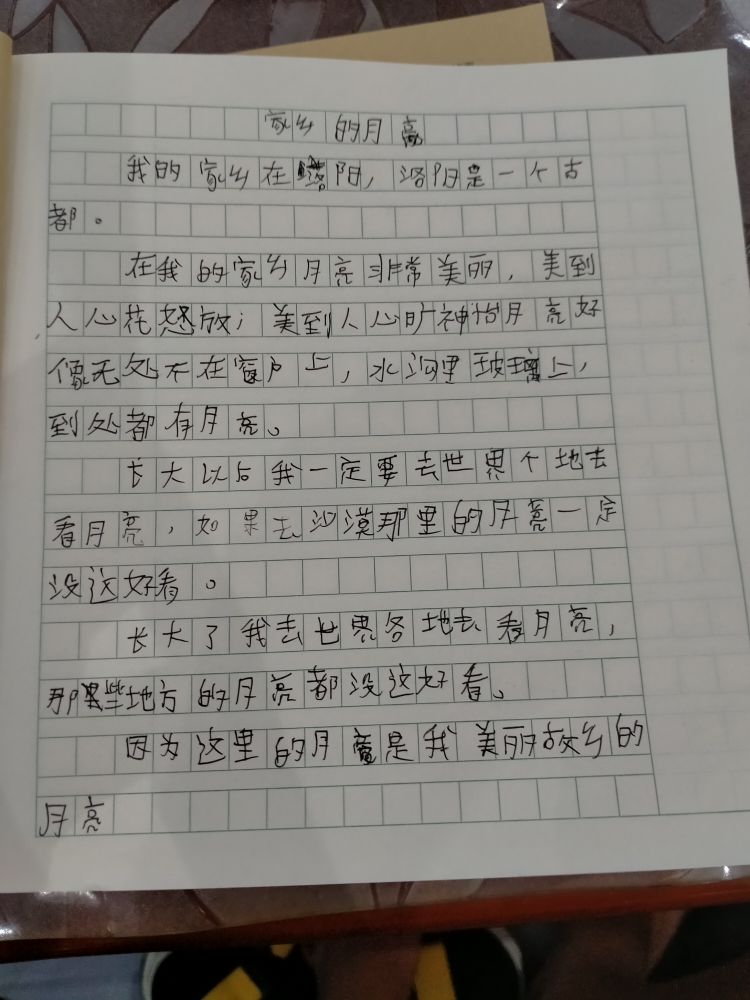 家乡的月亮
我的家乡在洛阳，洛阳是一个古
都。
在我的家乡月亮非常美丽，美到
人心花怒放；美到人心旷神怡月亮好
像无处不在窗户上，水沟里玻璃上，
到处都有月亮。
长大以后我一定要去世界个地去
看月亮，如果去沙漠那里的月亮一定
没这好看。
长大了我去世界各地去看月亮，
那些地方的月亮都没这好看。
因为这里的月亮是我美丽故乡的
月亮